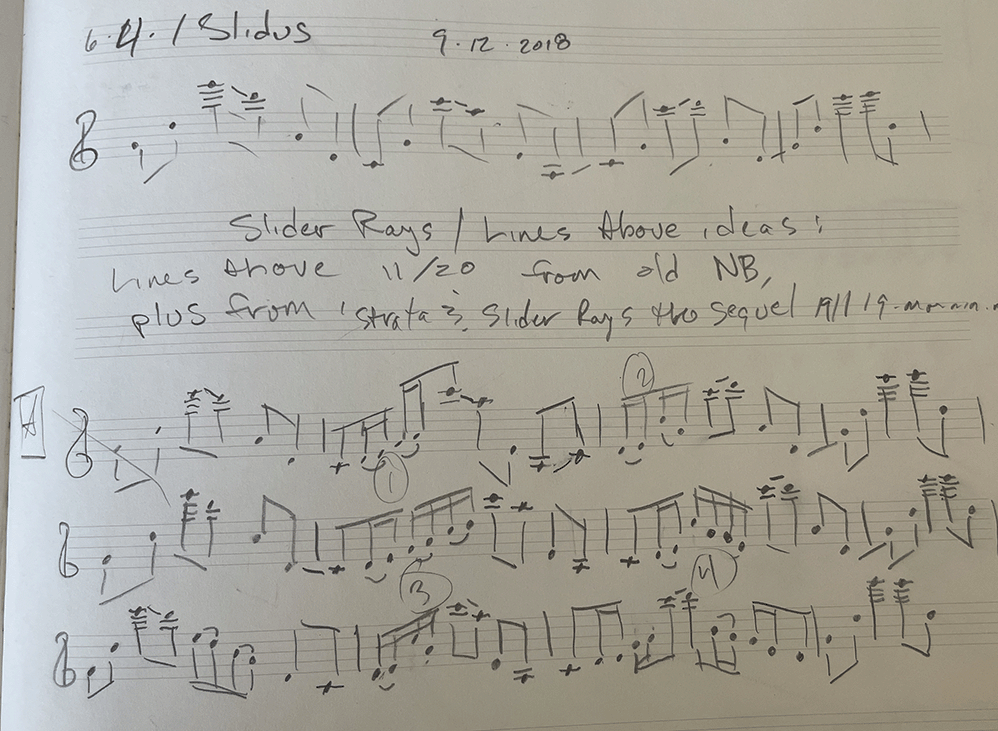 6.4. / Slidus 9.12.2018
Slider Rays / Lines Above ideas:
Lines Above 11/20 from old NB,
plus from 'strata 3, Slider Rays the sequel 19/1/19
A
2
1
3
4